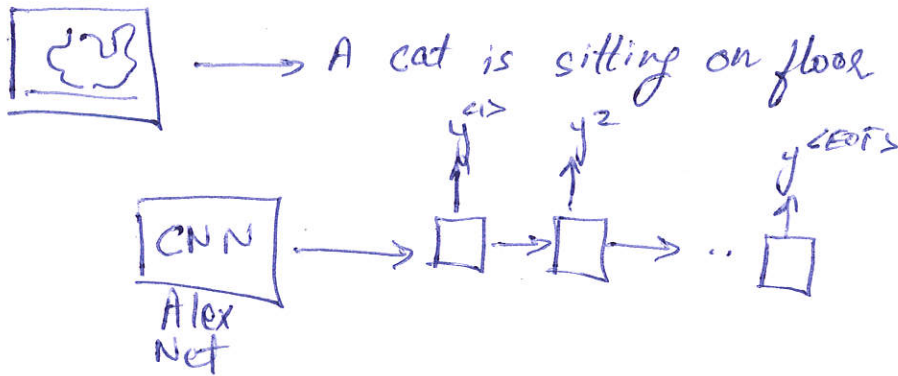 A cat is sitting on floor
y<1> y2 y<EOT>
CNN ..
Alex
Net